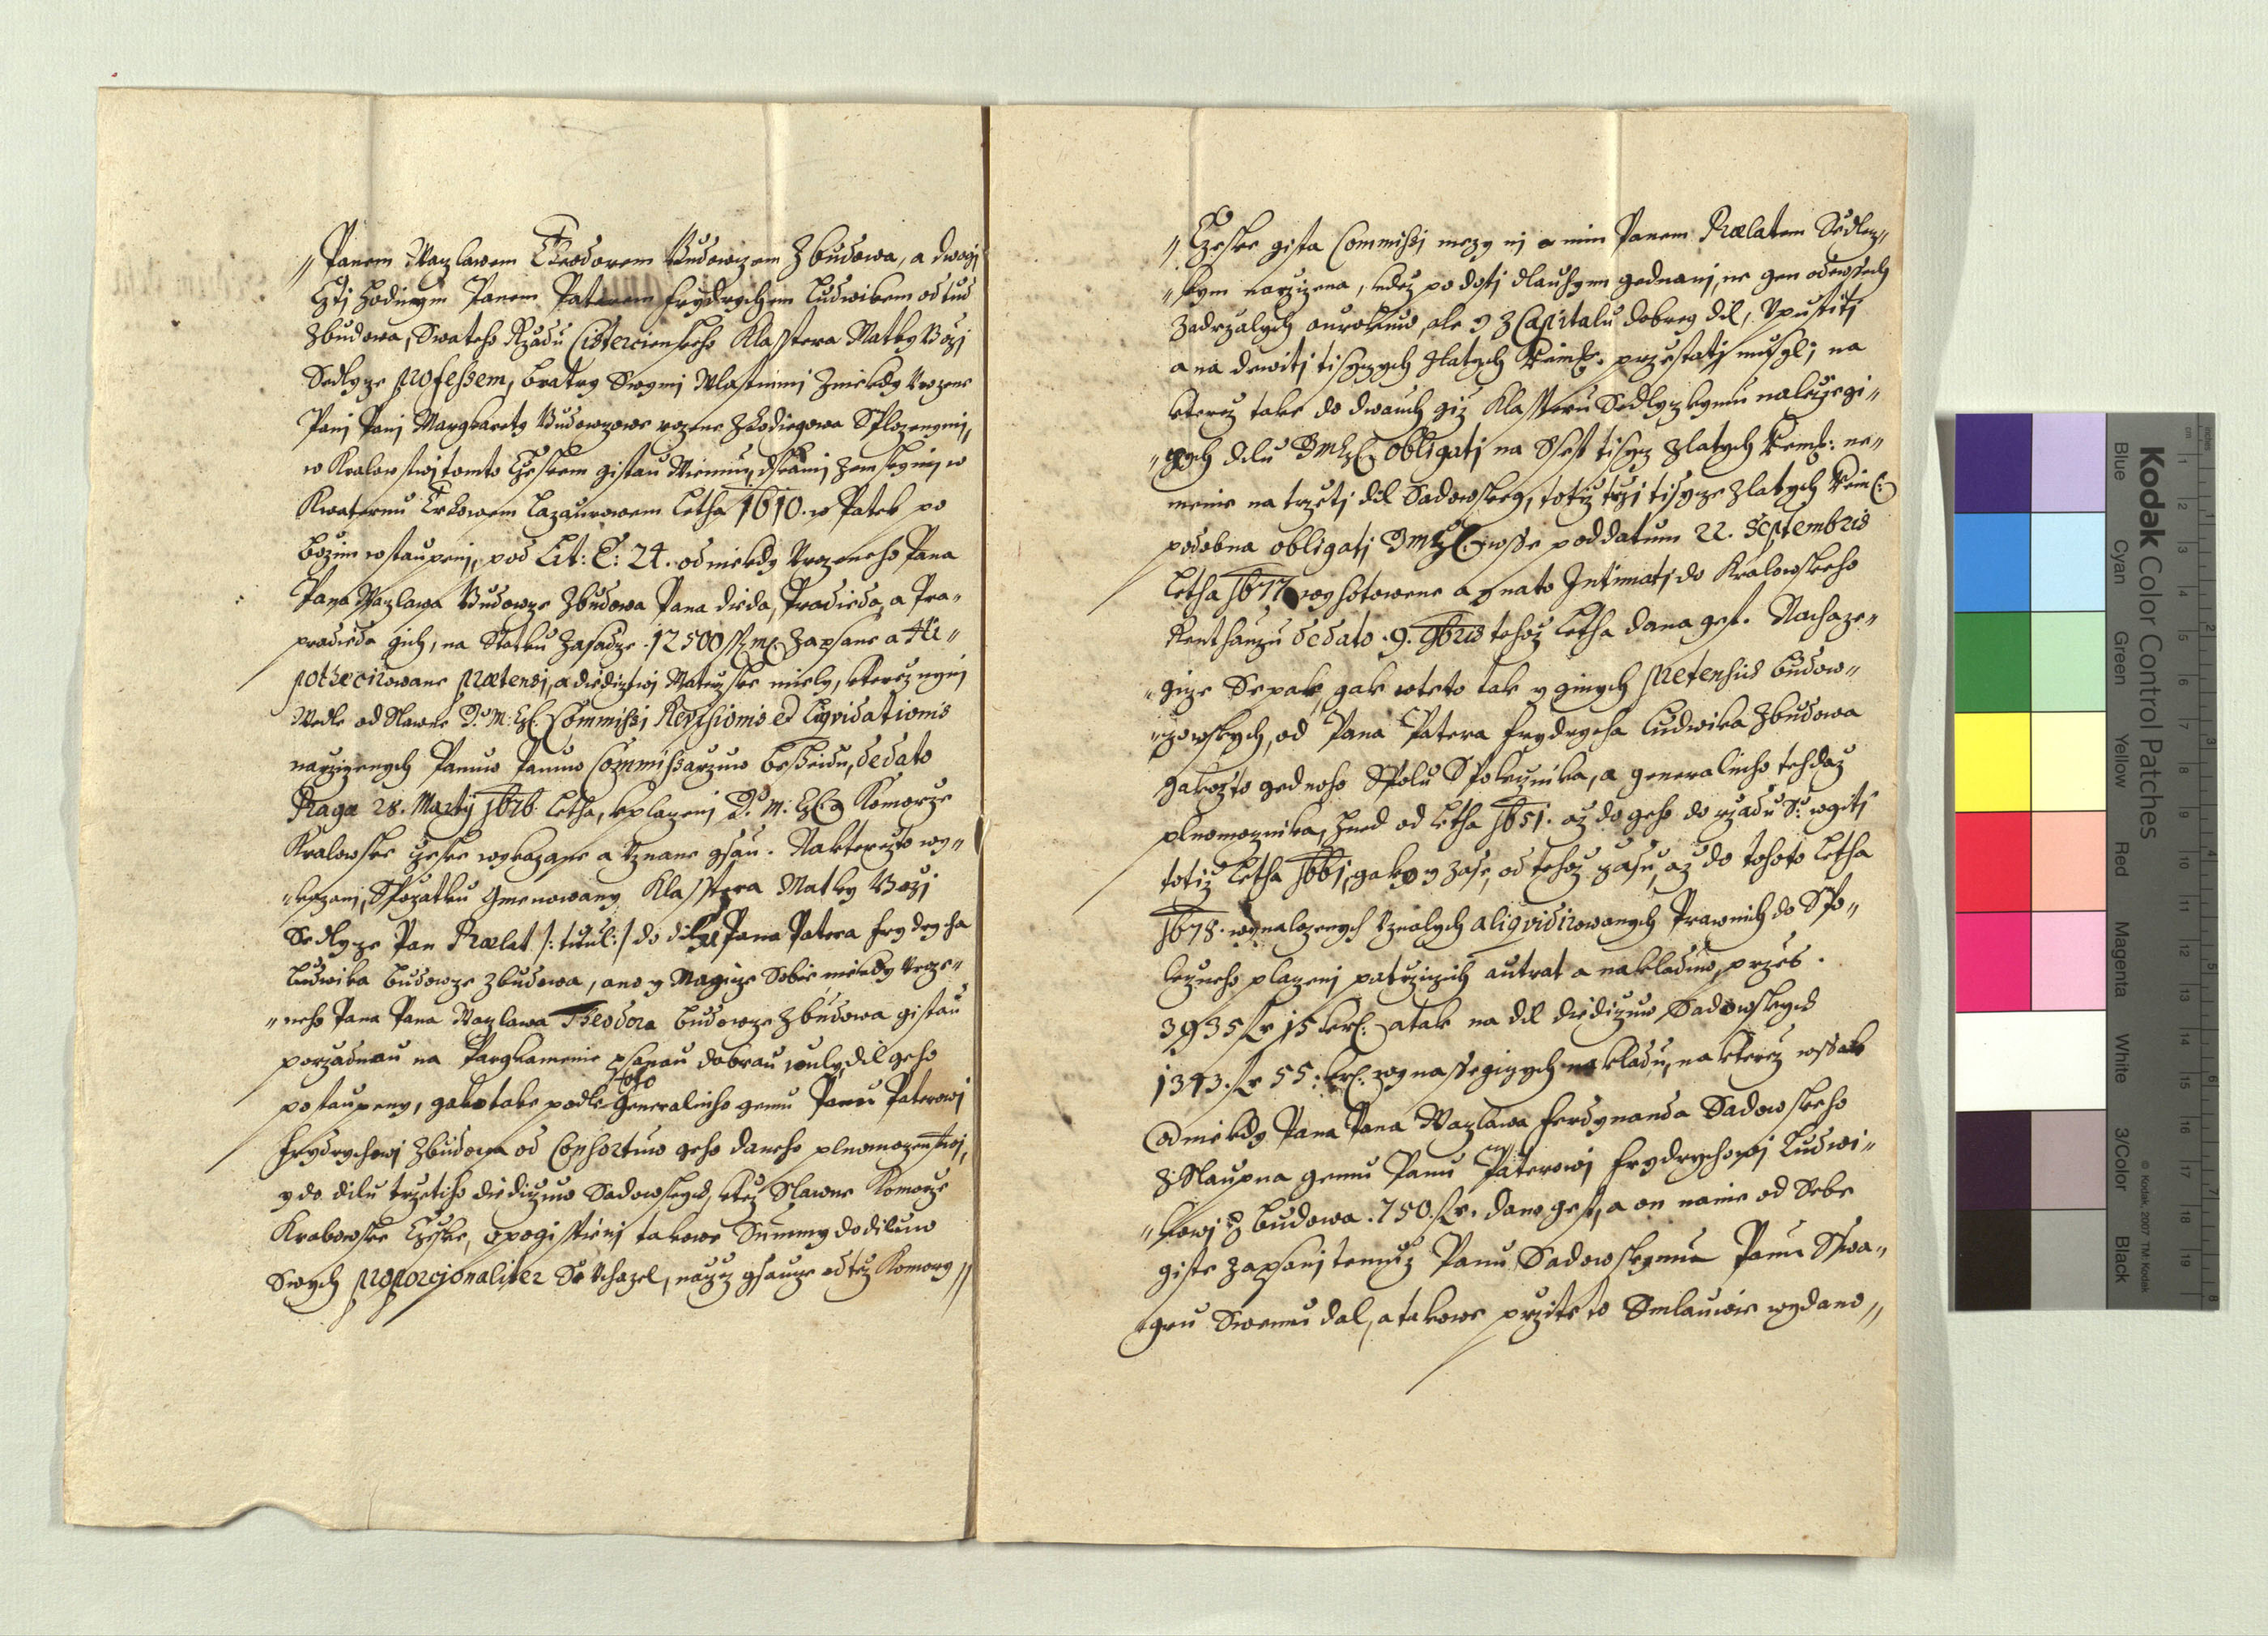 „Panem Waczlawem Theodorem Budowczem Zbudowa, a dwogj
Cztj hodnym Panem Paterem Frydrychem Ludwikem odtud
Zbudowa, Swateho Rzadu Cisterciensskeho Klasstera Matky Bozj
Sedlcze Professem, bratry Swymi Wlastnimi Zniekdy Urozene
Panj Panj Margkarety Budowczowe rozene Zhodiegowa Splozenymi,
w Kralowstwj tomto Czeskem gistau Miernau, dskami zemskymi w
Kwaternu Trhowem Lazaurowem Letha 1610. w Patek po
Bozim wstaupenj, pod Lit: E: 24. od niekdy Urozeneho Pana
Pana Waczlawa Budowcze Zbudowa Pana dieda, Pradieda, a Pra„
pradieda gich, na Statku Zasadcze .12500 ss. m. Zapsane a Hi„
pothecirowane Prætensi, a diedicztwj Materske miely, kterez nynj
Wedle od Slawne D: M: C. Commissi Revisionis et Liqvidationis
narzizenych Panuw Panuw Commissarzuw besseidu, de dato
Pragæ 28. Martij 1676 Letha, kplacenj D: M: C. a Komorze
Kralowske czeske wykazane a Uznane gsau. Nakterezto wy„
„kazanj, Spoczatku Gmenowany Klasstera Matky Bozj
Sedlcze Pan Prælat /: titul: / do dilu Pana Patera Frydrycha
Ludwika Budowcze Zbudowa, ano y Magicze Sobie niekdy Uroze„
„neho Pana Pana Waczlawa Theodora Budowcze Zbudowa gistau
porzadnau na Pargkamenie psanau dobrau wuly, dil geho
postaupeny, gakotake podle toho Generalniho gemu Panu Paterowj
Frydrychowj Zbudowa od Consortuw geho daneho plnomoczenstwj,
y do dilu trzetiho diediczuw Sadowskych, ktez Slawne Komorze
Kralowske Czeske, opogisstienj takowe Summy do diluw
Swych proporcionaliter Se Uchazel, naczez gsaucze od tez Komory „
„Czeske gista Commissi mezy nj a nim Panem Prælatem Sedlecz„
„skym narzizena, kdez po dosti dlauhym gednanj, ne gen odewssech
Zadrzalych aurokuw, ale y z Capitalu dobrey dil, Upustiti
a na dewiti tisyczych zlatych Reinske: przestati musyl; na
kterez take do dwauch giz Klassteru Sedleczkymu nalezegi„
„czych dilu D M C. obligati na Ssest tisycz zlatych Reins: ne„
menie na trzeti dil Sadowskey, totiz trzi tisycze zlatych Reins:
podobna obligati D M C. wsse pod datum 22. Septembris
Letha 1677 wyhotowene a na to Intimati do Kralowskeho
Renthauzu de dato .9. 9bris tehoz Letha dana gest. Nachaze„
„gicze Se pak, gak w teto tak y ginych pretensich Budow„
„czowskych, od Pana Patera Frydrycha Ludwika Zbudowa
gakozto gednoho Spolu Spoluczinika, a generalniho tehdaz
plnomocznika, hned od Letha 1651. az do geho do rzadu S: wgiti
totiz Letha 1661, gako y zase, od tehoz czasu, az do tohoto Letha
1678. wynalozenych Uznalych a liqvidirowanych Prawnich do Spo„
leczneho placenj patrziczich autrat a nakladuw, przes .
3935 fl 15 kr: a tak na dil diediczuw Sadowskych
1313. fl 55: kr. wynassegiczych nakladu, na kterez wssak
Od niekdy Pana Pana Waczlawa Ferdynanda Sadowskeho
z Slaupna gemu Panu Paterowj Frydrychowj Ludwi„
„kowj z Budowa .750. fl. dano gest, a on na nie od Sebe
giste zapsanj temuz Panu Sadowskymu Panu Sswa„
gru Swemu dal, a takowe przi teto Smlauwie wydano „